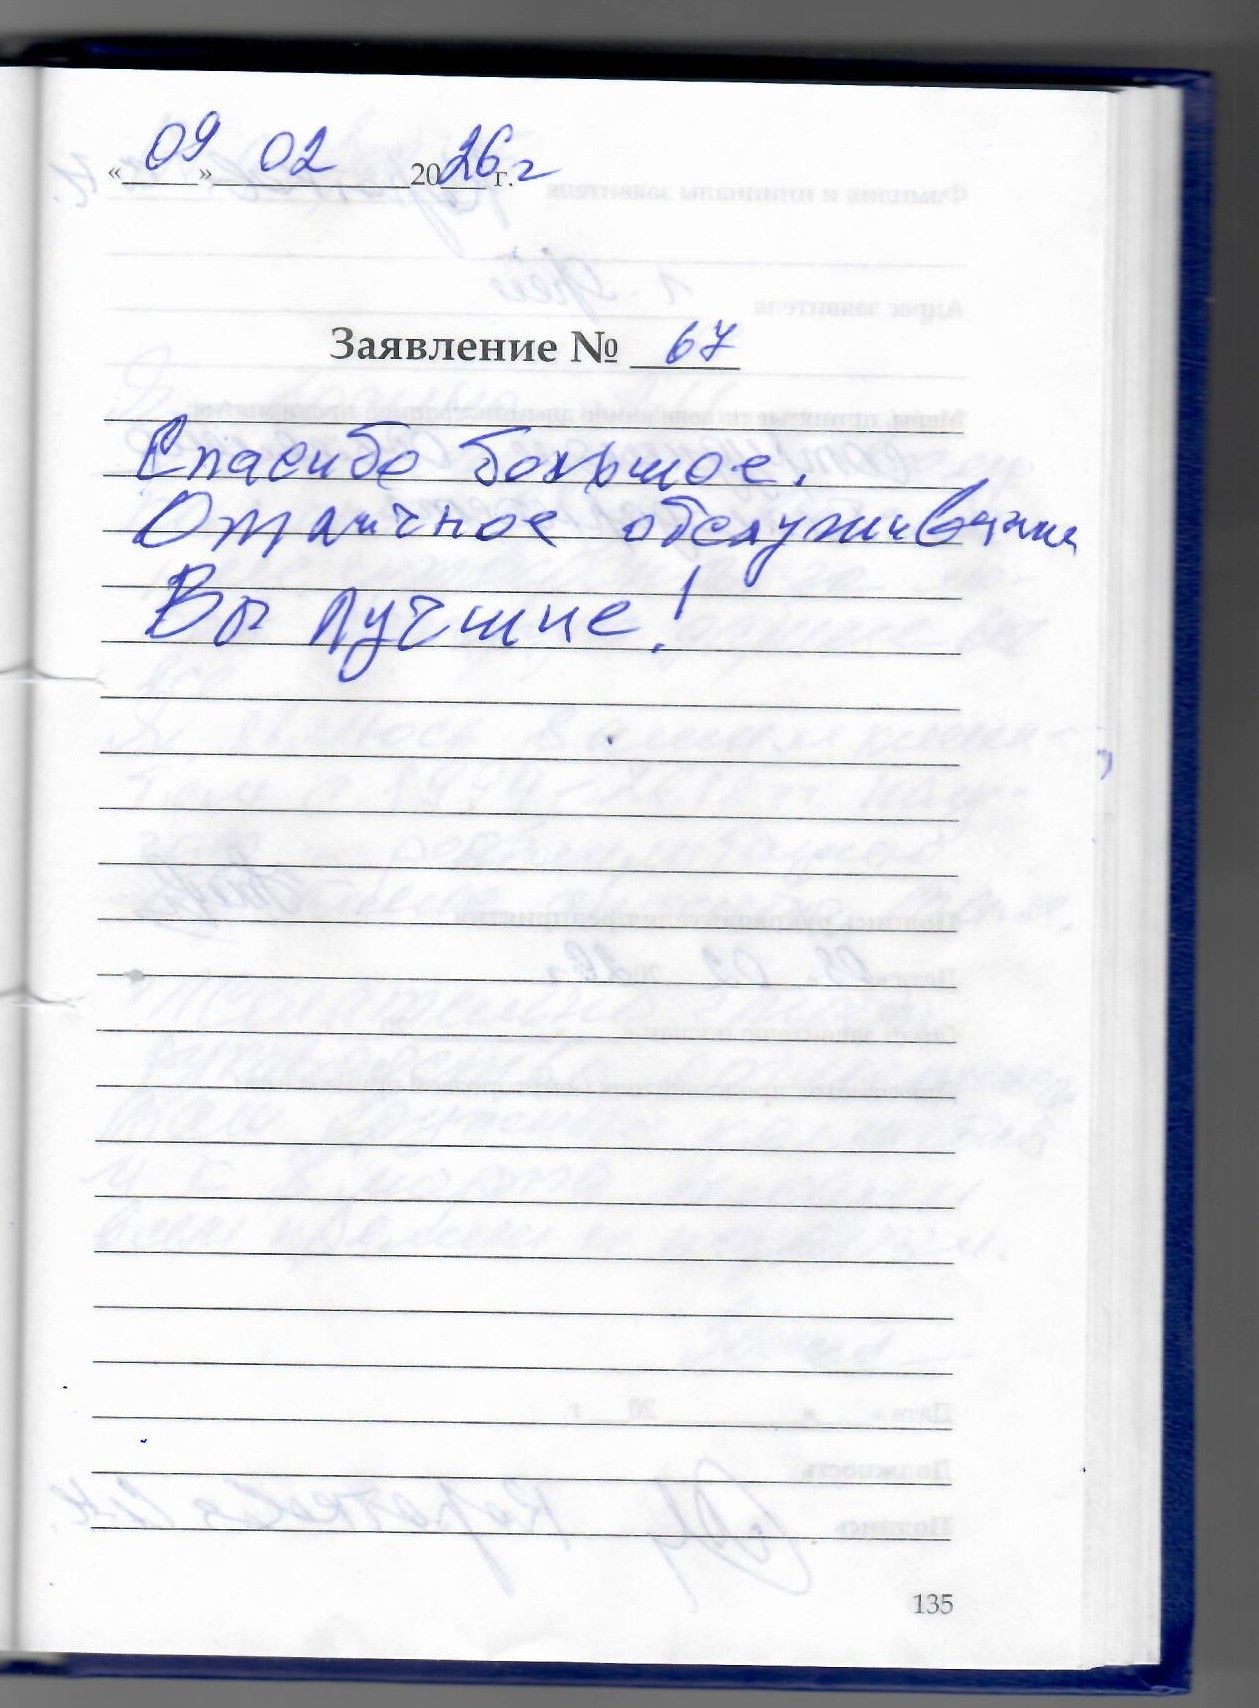 «09» 02 2026 г. г
Заявление № 67
Спасибо большое.
Отличное обслуживание
Вы лучшие!
135